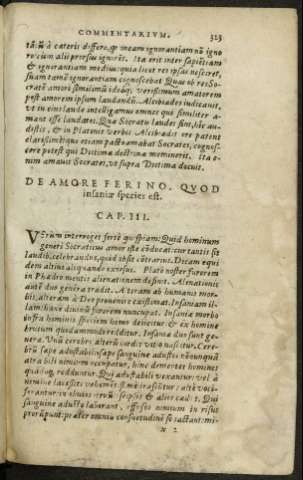 COMMENTARIVM. 323
tū à cæteris differo, meam ignorantiam nō igno
ro: cum alii prorsus ignorēt. Ita erit inter sapiētiam
& ignorantiam medius: quia licet res ipsas nesciret,
suam tamē ignorantiam cognoscebat. Qua ob res So-
cratē amori simillimū verissimum amatorem
post amorem ipsum laudandū Alcibiades iudicauit,
vt in eius laude intelligamus omnes qui similiter a-
mant esse laudatos. Quæ Socratis laudes sint, hic au-
distis, & in Platonis verbis Alcibiadis ore patent
clarissimè: quo etiam pacto amabat Socrates, cognos-
cere potest qui Diotimæ doctrinā meminerit. Ita e-
nim amauit Socrates, vt supra Diotima docuit.
DE AMORE FERINO, QVOD
insaniæ species est.
CAP. III.
VErum interroget fortè quispiam: Quid hominum
generi Socraticus amor iste cōducat: cur tantis sit
laudib. celebrandus, quid obsit cōtrarius. Dicam equi
dem altius aliquando exorsus. Plato noster furorem
in Phædro mentis alienationem definit. Alienationis
autē duo genera tradit. Alteram ab humanis mor-
bis, alteram à Deo prouenire existimat. Insaniam il-
lam: hanc diuinū furorem nuncupat. Insaniæ morbo
infra hominis speciem homo deiicitur: & ex homine
brutum quodammodo redditur. Insaniæ duo sunt ge-
nera. Vnū cerebri: alterū cordis vitio nascitur. Cere-
brū sæpe adusta bilis sæpe sanguine adustus nōnunquā
atra bili nimium occupatur, hinc dementes homines
quādoq; redduntur. Qui adusta bili vexantur: vel à
nemine lacessiti vehemētissimè irascūtur: altè voci-
ferantur: in obuios ruūt: seipsos & alios cædūt. Qui
sanguine adusto laborant, effusè nimium in risus
prorūpunt: præter omniū consuetudinē se iactant: mi-